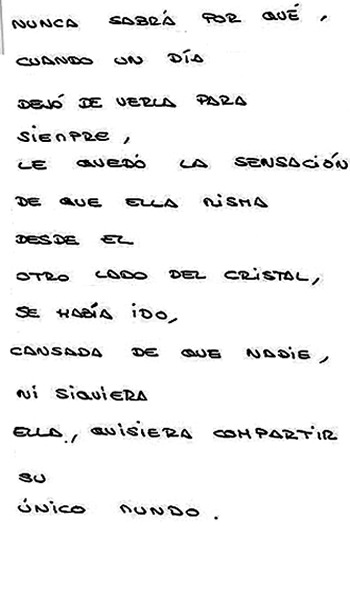 NUNCA SABRÁ POR QUÉ,
CUANDO UN DÍA
DEJÓ DE VERLA PARA
SIEMPRE,
LE QUEDÓ LA SENSACIÓN
DE QUE ELLA MISMA
DESDE EL
OTRO LADO DEL CRISTAL,
SE HABÍA IDO,
CANSADA DE QUE NADIE,
NI SIQUIERA
ELLA, QUISIERA COMPARTIR
SU
ÚNICO MUNDO.